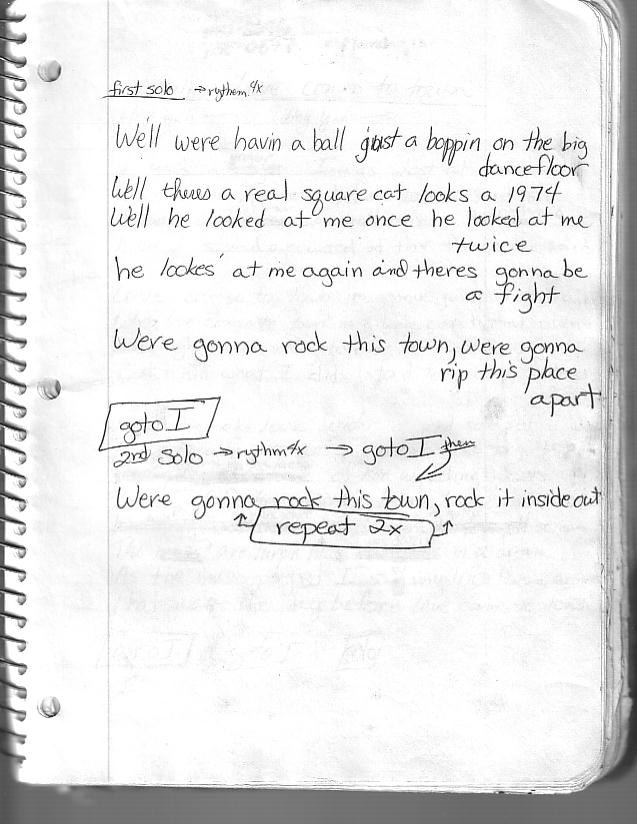 first solo → rythem 4x
We'll were havin a ball just a boppin on the big
dancefloor
Well theres a real square cat looks a 1974
Well he looked at me once he looked at me
twice
he lookes at me again and theres gonna be
a fight
Were gonna rock this town, were gonna
rip this place
apart
goto I
2nd solo → rythm 4x → goto I then
Were gonna rock this town, rock it inside out
repeat 2x